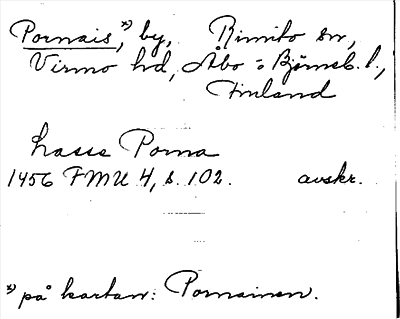 Pornais,*) by, Rimito sn,
Virmo hd, Åbo = Björneb. l.,
Finland
Lasse Porna
1456 FMU 4, s. 102. avskr.
*) på kartan: Pornainen.